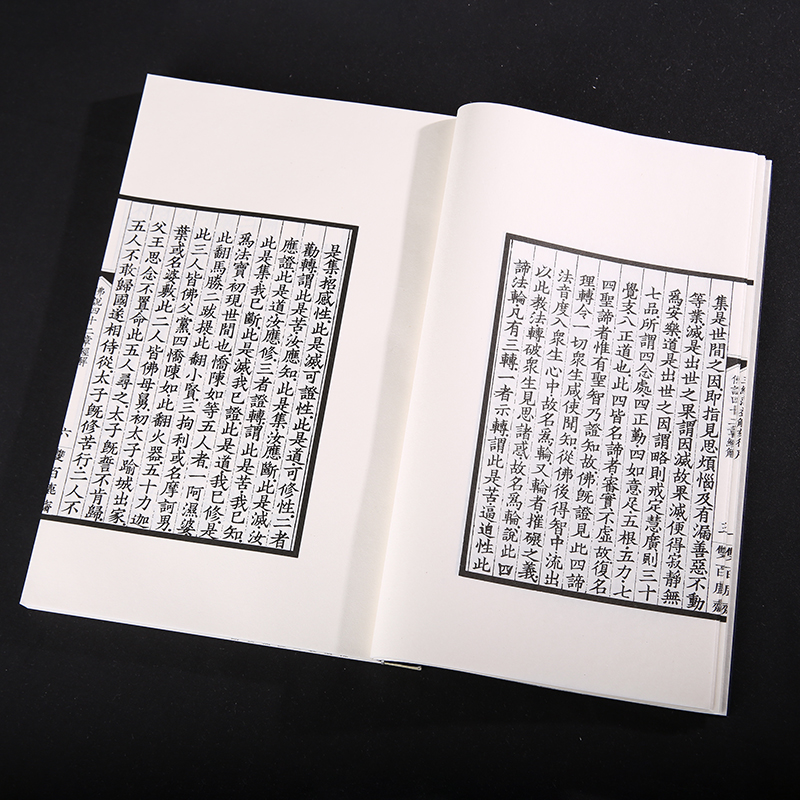 集是世間之因即指見思煩惱及有漏善惡不動
等業滅是出世之果謂因滅故果滅便得寂靜無
爲安樂道是出世之因謂略則戒定慧廣則三十
七品所謂四念處四正勤四如意足五根五力七
覺支八正道也此四皆名諦者審實不虛故復名
四聖諦者惟有聖智乃證知故佛既證見此四諦
理轉令一切衆生咸使聞知從佛後得智中流出
法音度入衆生心中故名爲輪又輪者摧碾之義
以此教法轉破衆生見思諸惑故名爲輪說此四
諦法輪凡有三轉一者示轉謂此是苦逼迫性此
是集招感性此是滅可證性此是道可修性二者
勸轉謂此是苦汝應知此是集汝應斷此是滅汝
應證此是道汝應修三者證轉謂此是苦我已知
此是集我已斷此是滅我已證此是道我已修是
爲法寶初現世間也憍陳如等五人者一阿濕婆
此翻馬勝二跋提此翻小賢三拘利或名摩訶男
此三人皆佛父黨四憍陳如此翻火器五十力迦
葉或名婆敷此二人皆佛母舅初太子踰城出家
父王思念不置命此五人尋之太子既誓不肯歸
五人不敢歸國遂相侍從太子既修苦行二人不
佛說四十二章經解
六